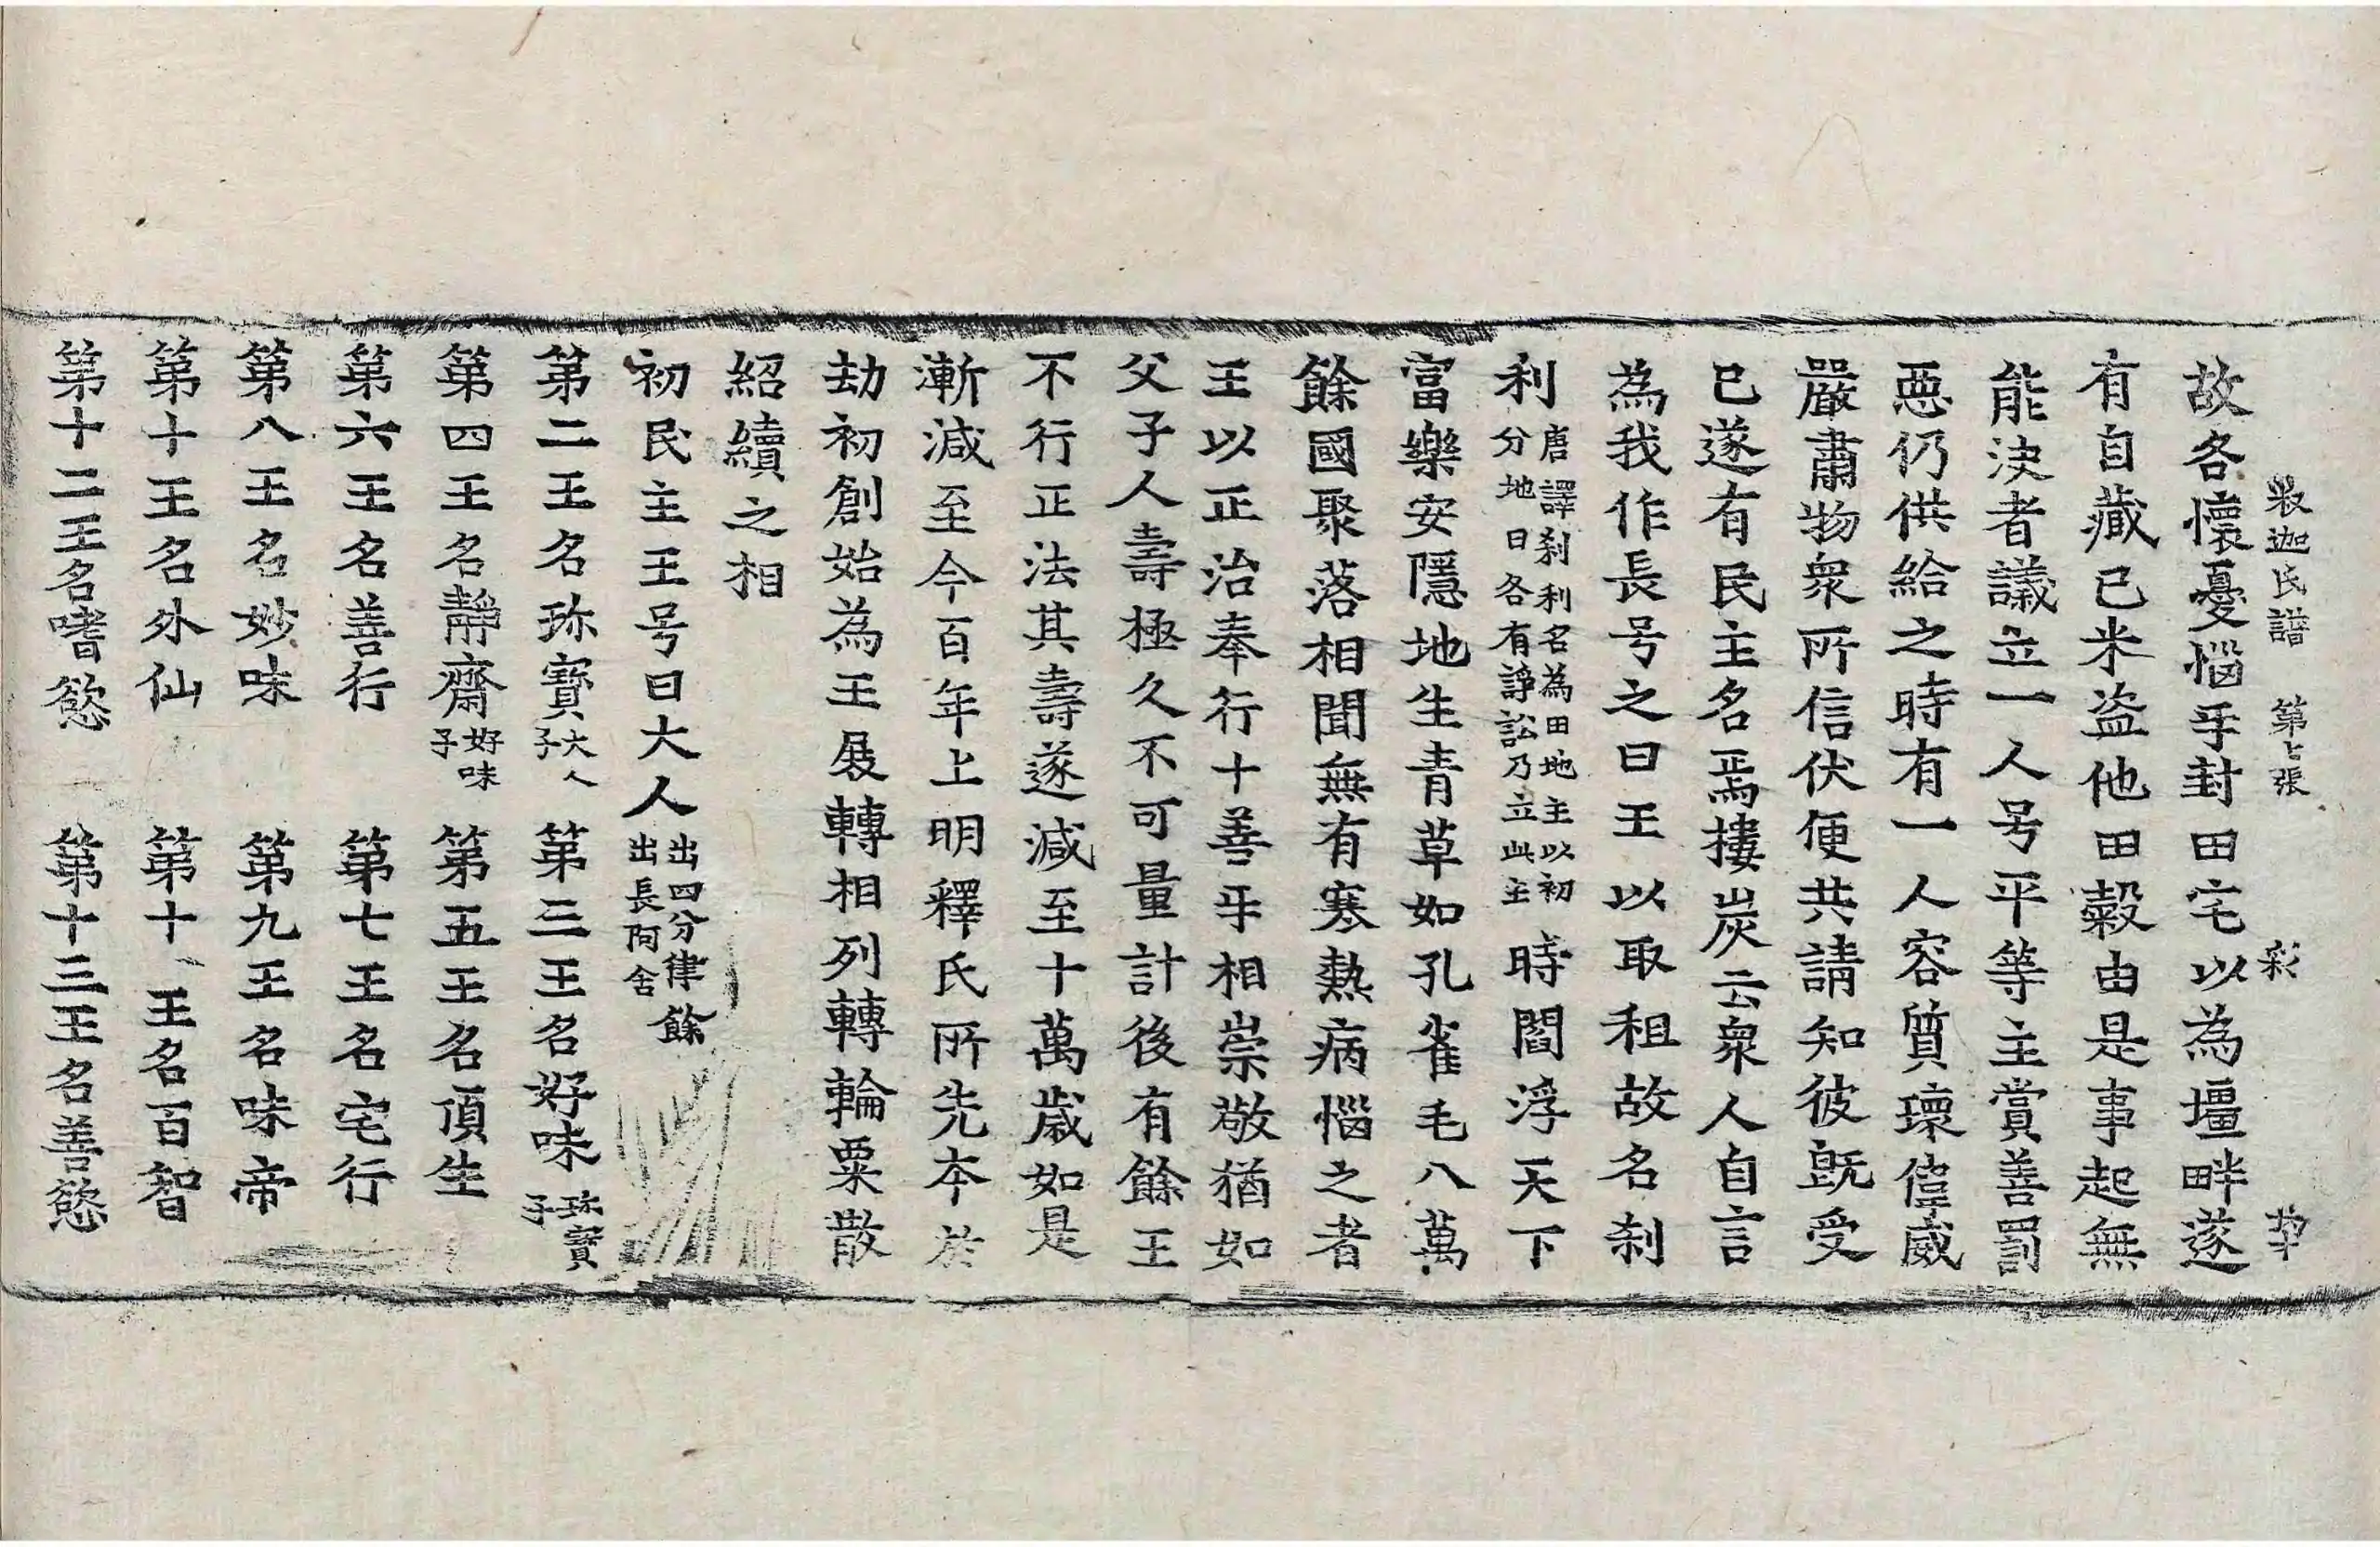 釋迦氏譜 第七張 彩
故各懷憂惱乎封田宅以為壇畔遂
有自藏已米盜他田穀由是事起無
能決者議立一人号平等主賞善罰
惡仍供給之時有一人容質瓌偉威
嚴肅物衆所信伏便共請知彼旣受
已遂有民主名焉樓炭云衆人自言
為我作長号之曰王以取租故名刹
利唐譯刹利名為田地主以初
分地日各有諍訟乃立此主時閻浮天下
富樂安隱地生青草如孔雀毛八萬
餘國聚落相聞無有寒熱病惱之者
王以正治奉行十善乎相崇敬猶如
父子人壽極久不可量計後有餘王
不行正法其壽遂減至十萬歲如是
漸減至今百年上明釋氏所先本於
劫初創始為王展轉相列轉輪粟散
紹續之相
初民主王号曰大人出四分律餘
出長阿含
第二王名珎寶大人
子 第三王名好味珎寶
子
第四王名靜齋好味
子 第五王名頂生
第六王名善行 第七王名宅行
第八王名妙味 第九王名味帝
第十王名外仙 第十一王名百智
第十二王名嗜慾 第十三王名善慾